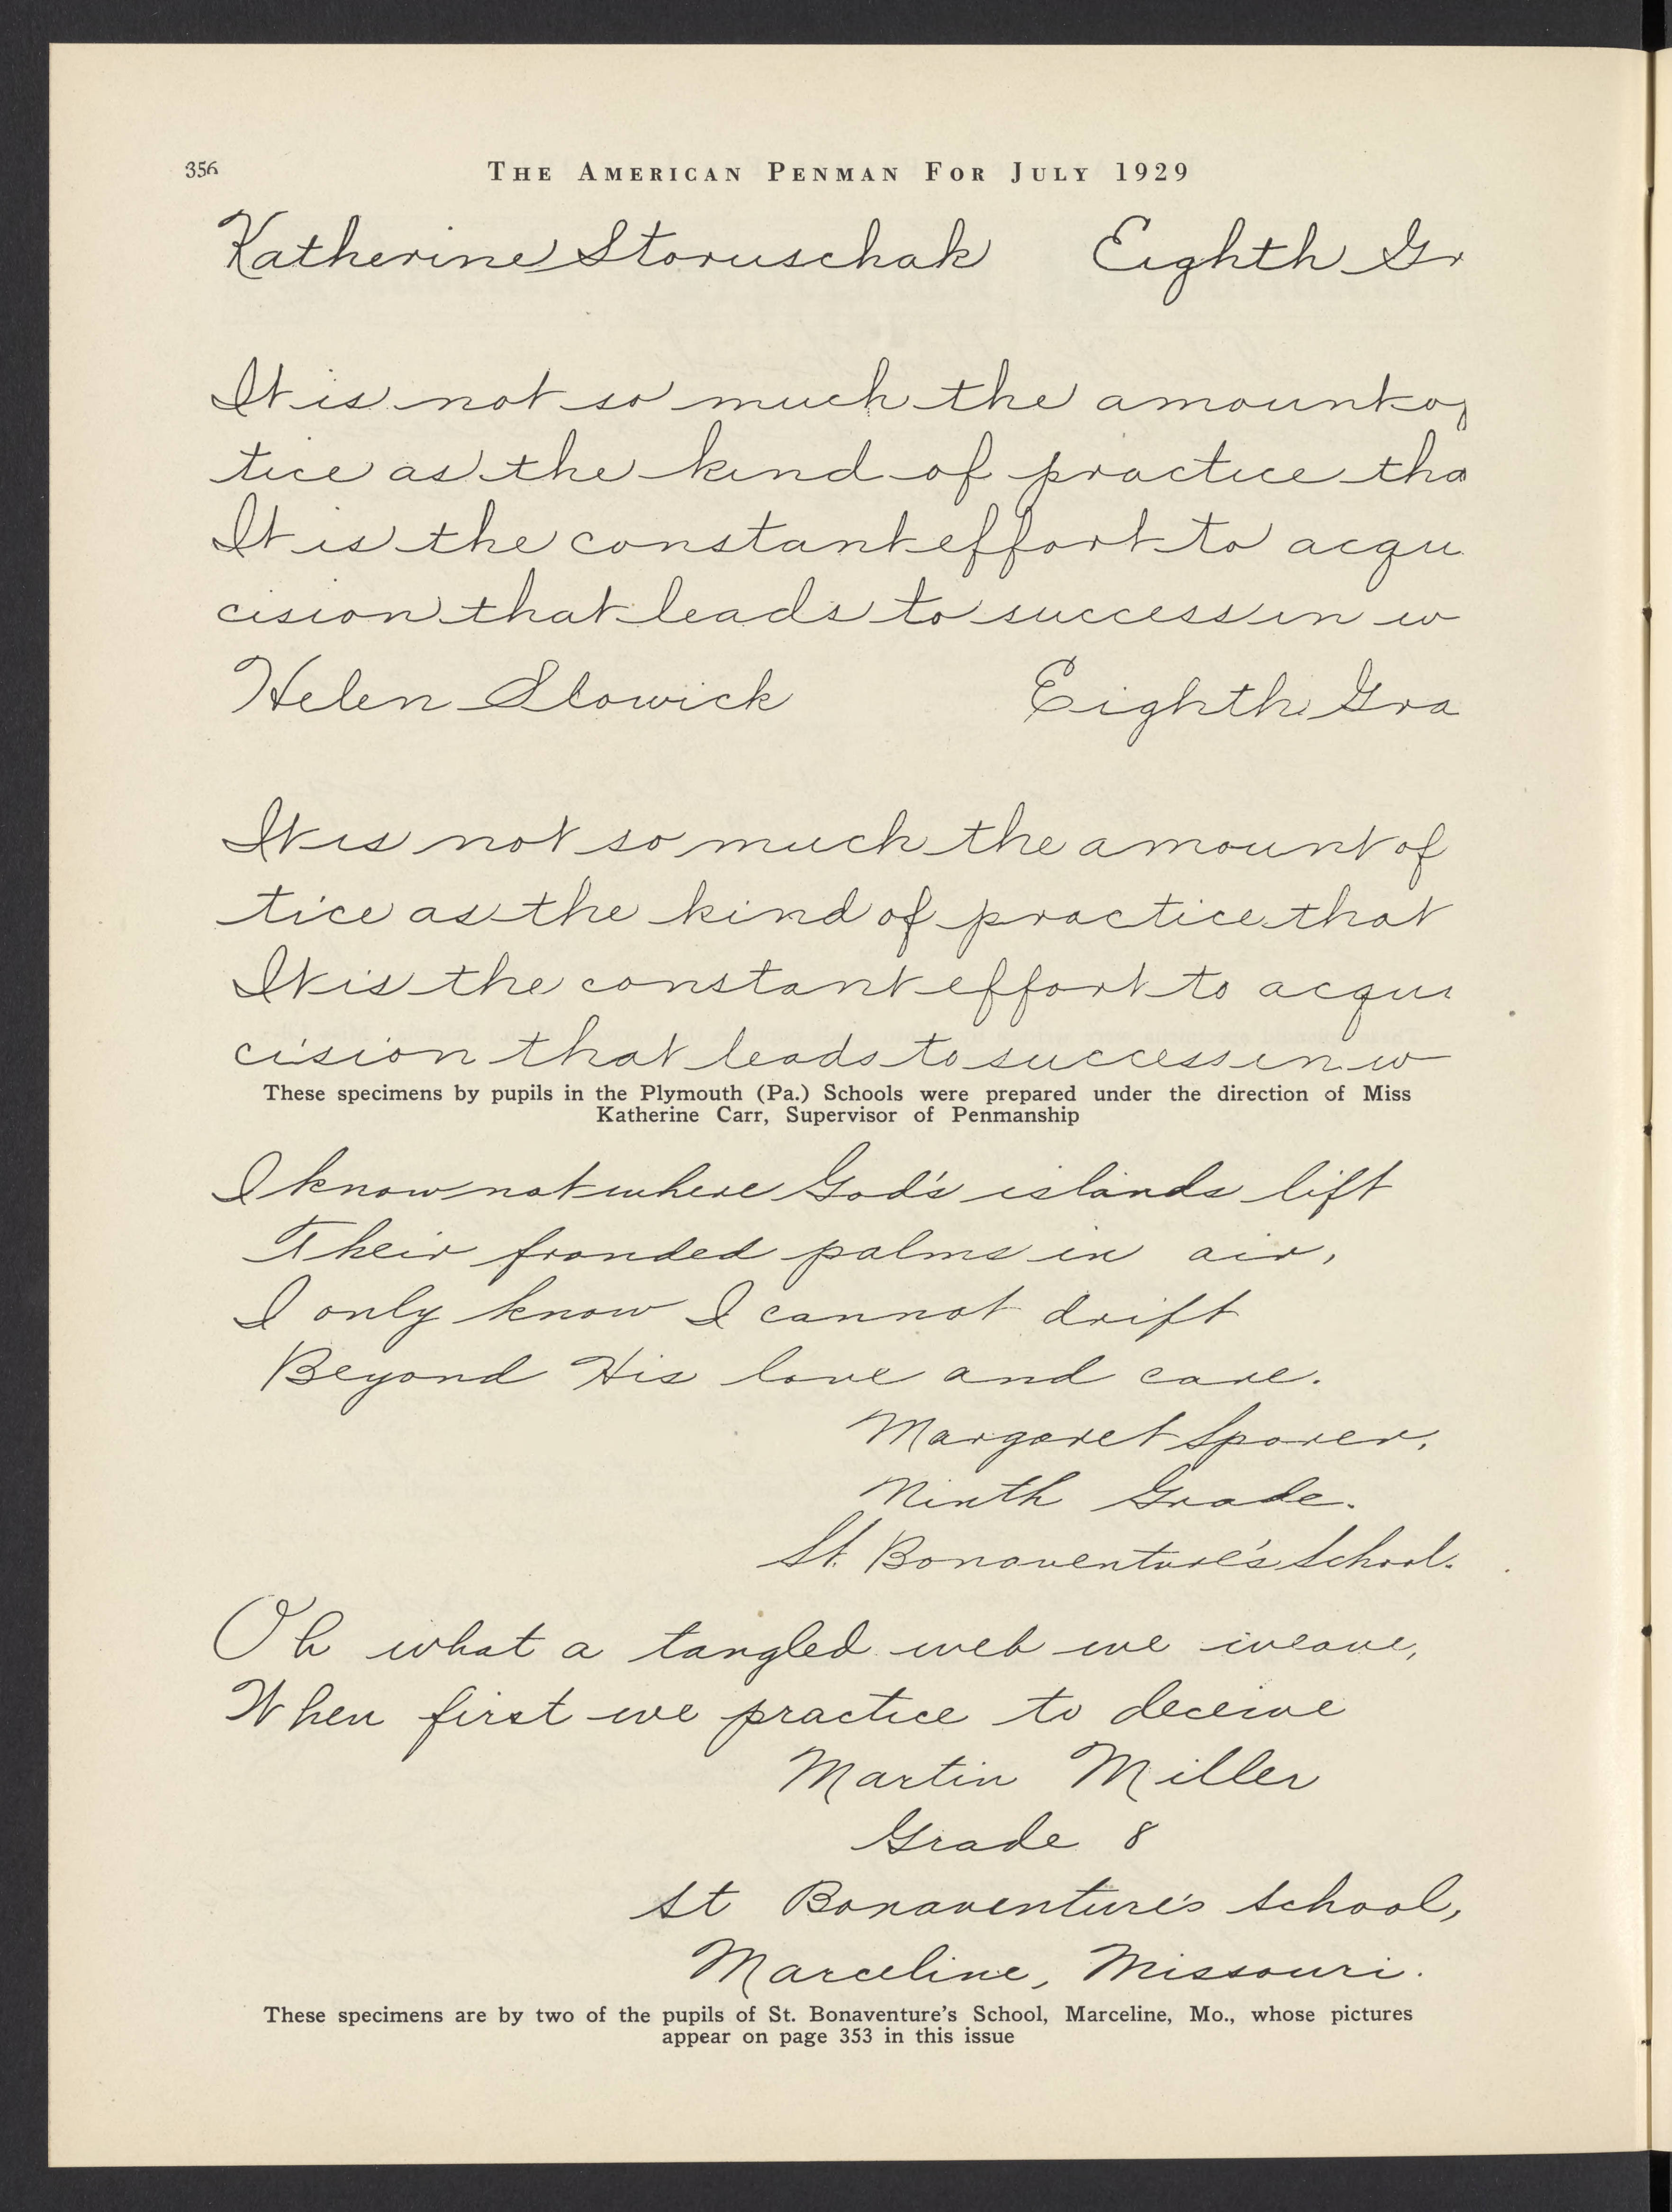 356
THE AMERICAN PENMAN FOR JULY 1929
Katherine Storuschak Eighth Gr
It is not so much the amount of
tice as the kind of practice tha
It is the constant effort to acqu
cision that leads to success in w
Helen Slowick Eighth Gra
It is not so much the amount of
tice as the kind of practice that
It is the constant effort to acqui
cision that leads to success in w
These specimens by pupils in the Plymouth (Pa.) Schools were prepared under the direction of Miss
Katherine Carr, Supervisor of Penmanship
I know not where God's islands lift
Their fronded palms in air,
I only know I cannot drift
Beyond His love and care.
Margaret Sporer,
Ninth Grade.
St. Bonaventure's School.
Oh what a tangled web we weave,
When first we practice to deceive
Martin Miller
Grade 8
St Bonaventure's School,
Marceline, Missouri.
These specimens are by two of the pupils of St. Bonaventure's School, Marceline, Mo., whose pictures
appear on page 353 in this issue